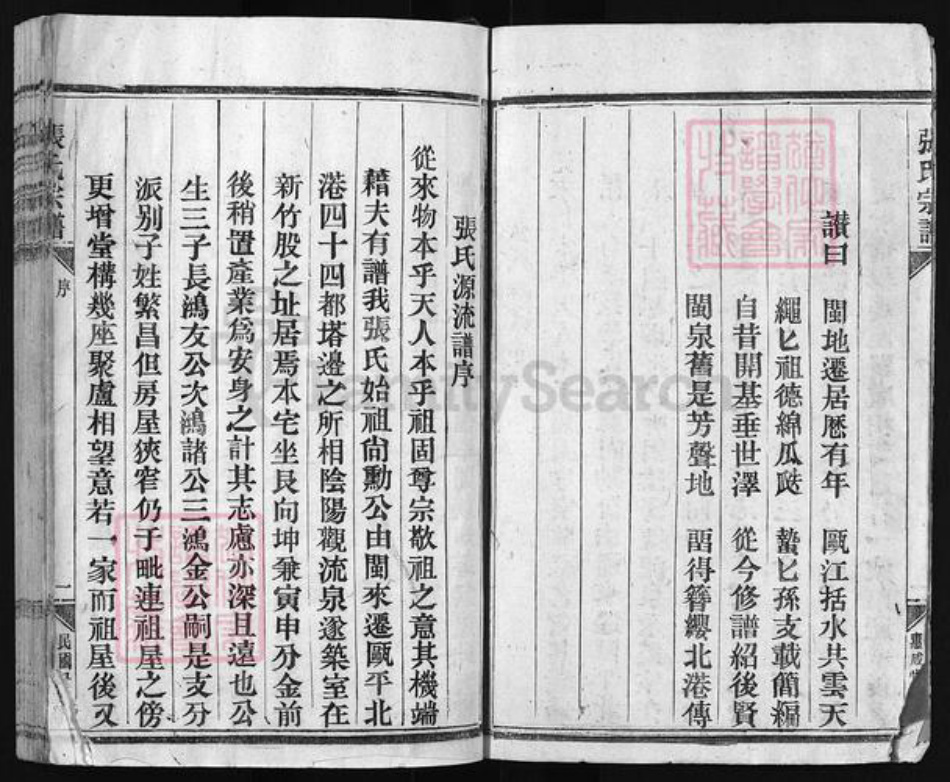 張氏宗譜
讃曰
閩地遷居厯有年 甌江括水共雲天
繩匕祖德綿瓜瓞 蟄匕孫支載簡編
自昔開基垂世澤 從今修譜紹後賢
閩泉舊是芳聲地 畱得簪纓北港傳
張氏源流譜序
從來物本乎天人本乎祖固尊宗敬祖之意其機端
藉夫有譜我張氏始祖尙勳公由閩來遷甌平北
港四十四都塔邊之所相陰陽觀流泉遂築室在
新竹股之址居焉本宅坐艮向坤兼寅申分金前
後稍置產業爲安身之計其志慮亦深且遠也公
生三子長鴻友公次鴻諸公三鴻金公嗣是支分
派别子姓繁昌但房屋狹窄仍于毗連祖屋之傍
更增堂構幾座聚廬相望意若一家而祖屋後又
張氏宗譜
序
一
民國
FamilySearch